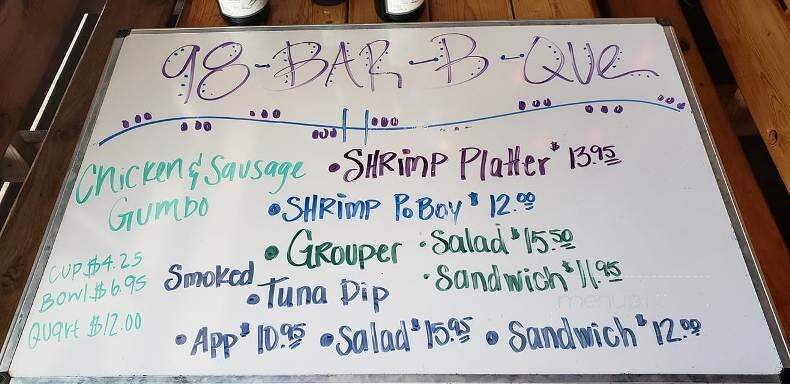 98-BAR-B-QUe
Chicken & Sausage
Gumbo
CUP $4.25
Bowl $6.95
Quart $12.00
• SHRimp Platter $13.95
• SHRimp PoBoy $12.00
• Grouper • Salad $15.50
• Sandwich $11.95
Smoked
• Tuna Dip
• App $10.95 • Salad $15.95 • Sandwich $12.00